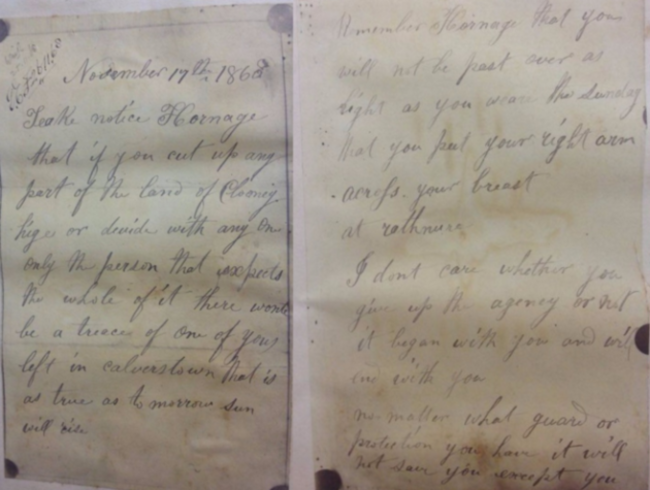 November 17th 1868
Teake notice Hornage
that if you cut up any
part of the land of Clonig
higes or devide with any one
only the person that expects
the whole of it there wont
be a treace of one of yous
left in calverstown that is
as true as to morrow sun
will rise
Remember Hornage that you
will not be past over as
right as you weare the sunday
that you put your right arm
acrofs your breast
at rathmore
I dont care whether you
give up the agency or not
it began with you and will
end with you
no matter what guard or
protection you have it will
not save you except you